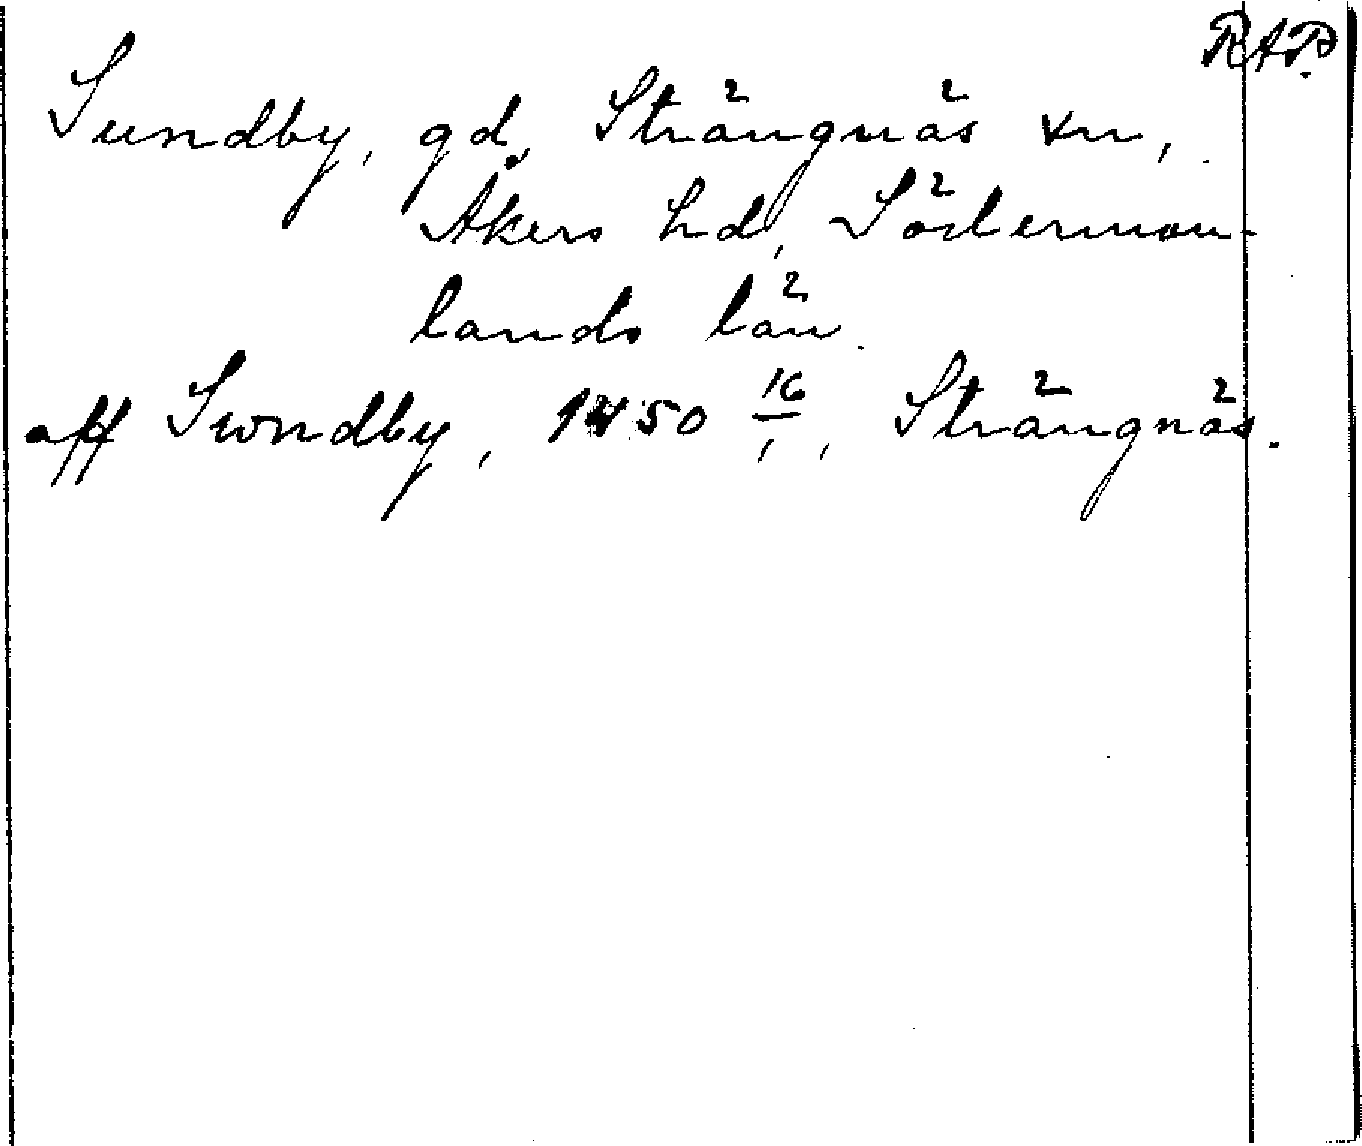 RAP.
Sundby, gd, Strängnäs xn,
Åkers hd, Söderman-
lands län.
aff Swndby, 1450 16/1, Strängnäs.